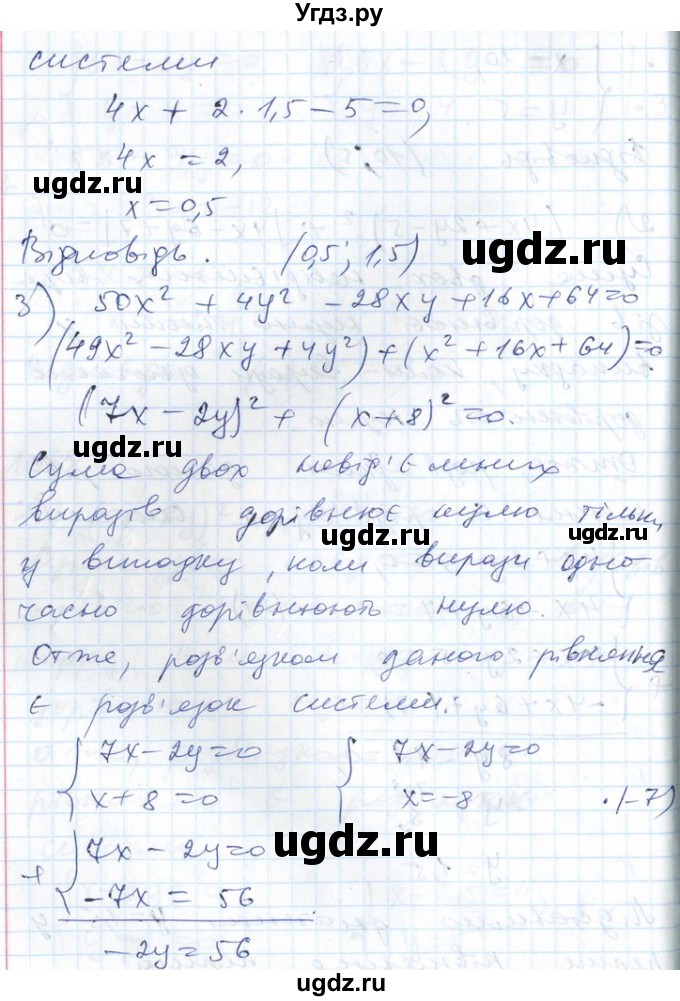 Угдз.ру
системи
4x + 2 · 1,5 – 5 = 0,
4x = 2,
ugdz.ru ugdz.ru
x = 0,5
Відповідь. (0,5; 1,5) ugdz.ru
3) 50x² + 4y² – 28xy + 16x + 64 = 0
(49x² – 28xy + 4y²) + (x² + 16x + 64) = 0
(7x – 2y)² + (x + 8)² = 0.
ugdz.ru
Сума двох невід'ємних
виразів дорівнює нулю тільки
ugdz.ru ugdz.ru
у випадку, коли вирази одно
часно дорівнюють нулю.
Отже, розв'язком даного рівняння
є розв'язок системи:
7x – 2y = 0 7x – 2y = 0
x + 8 = 0 x = –8 · (–7)
ugdz.ru ugdz.ru
+ 7x – 2y = 0
–7x = 56
–2y = 56
ugdz.ru